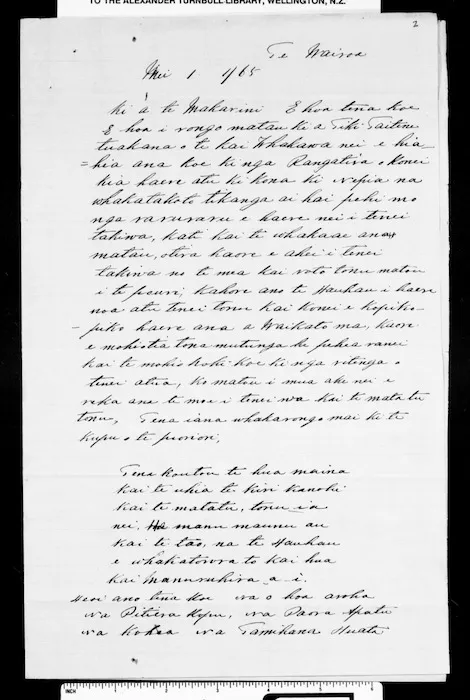 TO THE ALEXANDER TURNBULL LIBRARY, WELLINGTON, N.Z.
2
Te Wairoa
Mei 1 1/65
Ki a te Makarini E hoa tena koe
E hoa i rongo matau ki a Tiki Taitene
tuakana o te kai Whakawa nei e hia-
=hia ana koe ki nga Rangatira o konei
kia haere atu ki kona ki Nepia na
whakatakoto tikanga ai hai pehi mo
nga raruraru e haere nei i tenei
takiwa, kati kai te whakaae ana
matau, otira kaore e ahei i tenei
takiwa no te mea kai roto tonu matou
i te pouri, kahore ano te Hauhau i haere
noa atu tenei tonu kai konei e kopiko-
-piko haere ana a Waikato ma, kaore
e mohiotia tona mutunga ke pehea ranei
kai te mohio hoki koe ki nga ritenga o
tenei atua, ko matou i mua ake nei e
reka ana te moe i tenei wa kai te mata tu
tonu, Tena iana whakarongo mai ki te
kupu o te pioriori,
Tena koutou te hua maina
kai te uhia te kiri kanohi
kai te matatu, tonu ia
nei, manu maunu au
kai te tao, na te Hauhau
e whakatowra to kai hua
kai Manurukira a i.
Heoi ano tena koe na o hoa aroha
na Pitiera Kopu, na Paora Apatu
na Kohea na Tamihana Huata
INCH 1 2 3 4